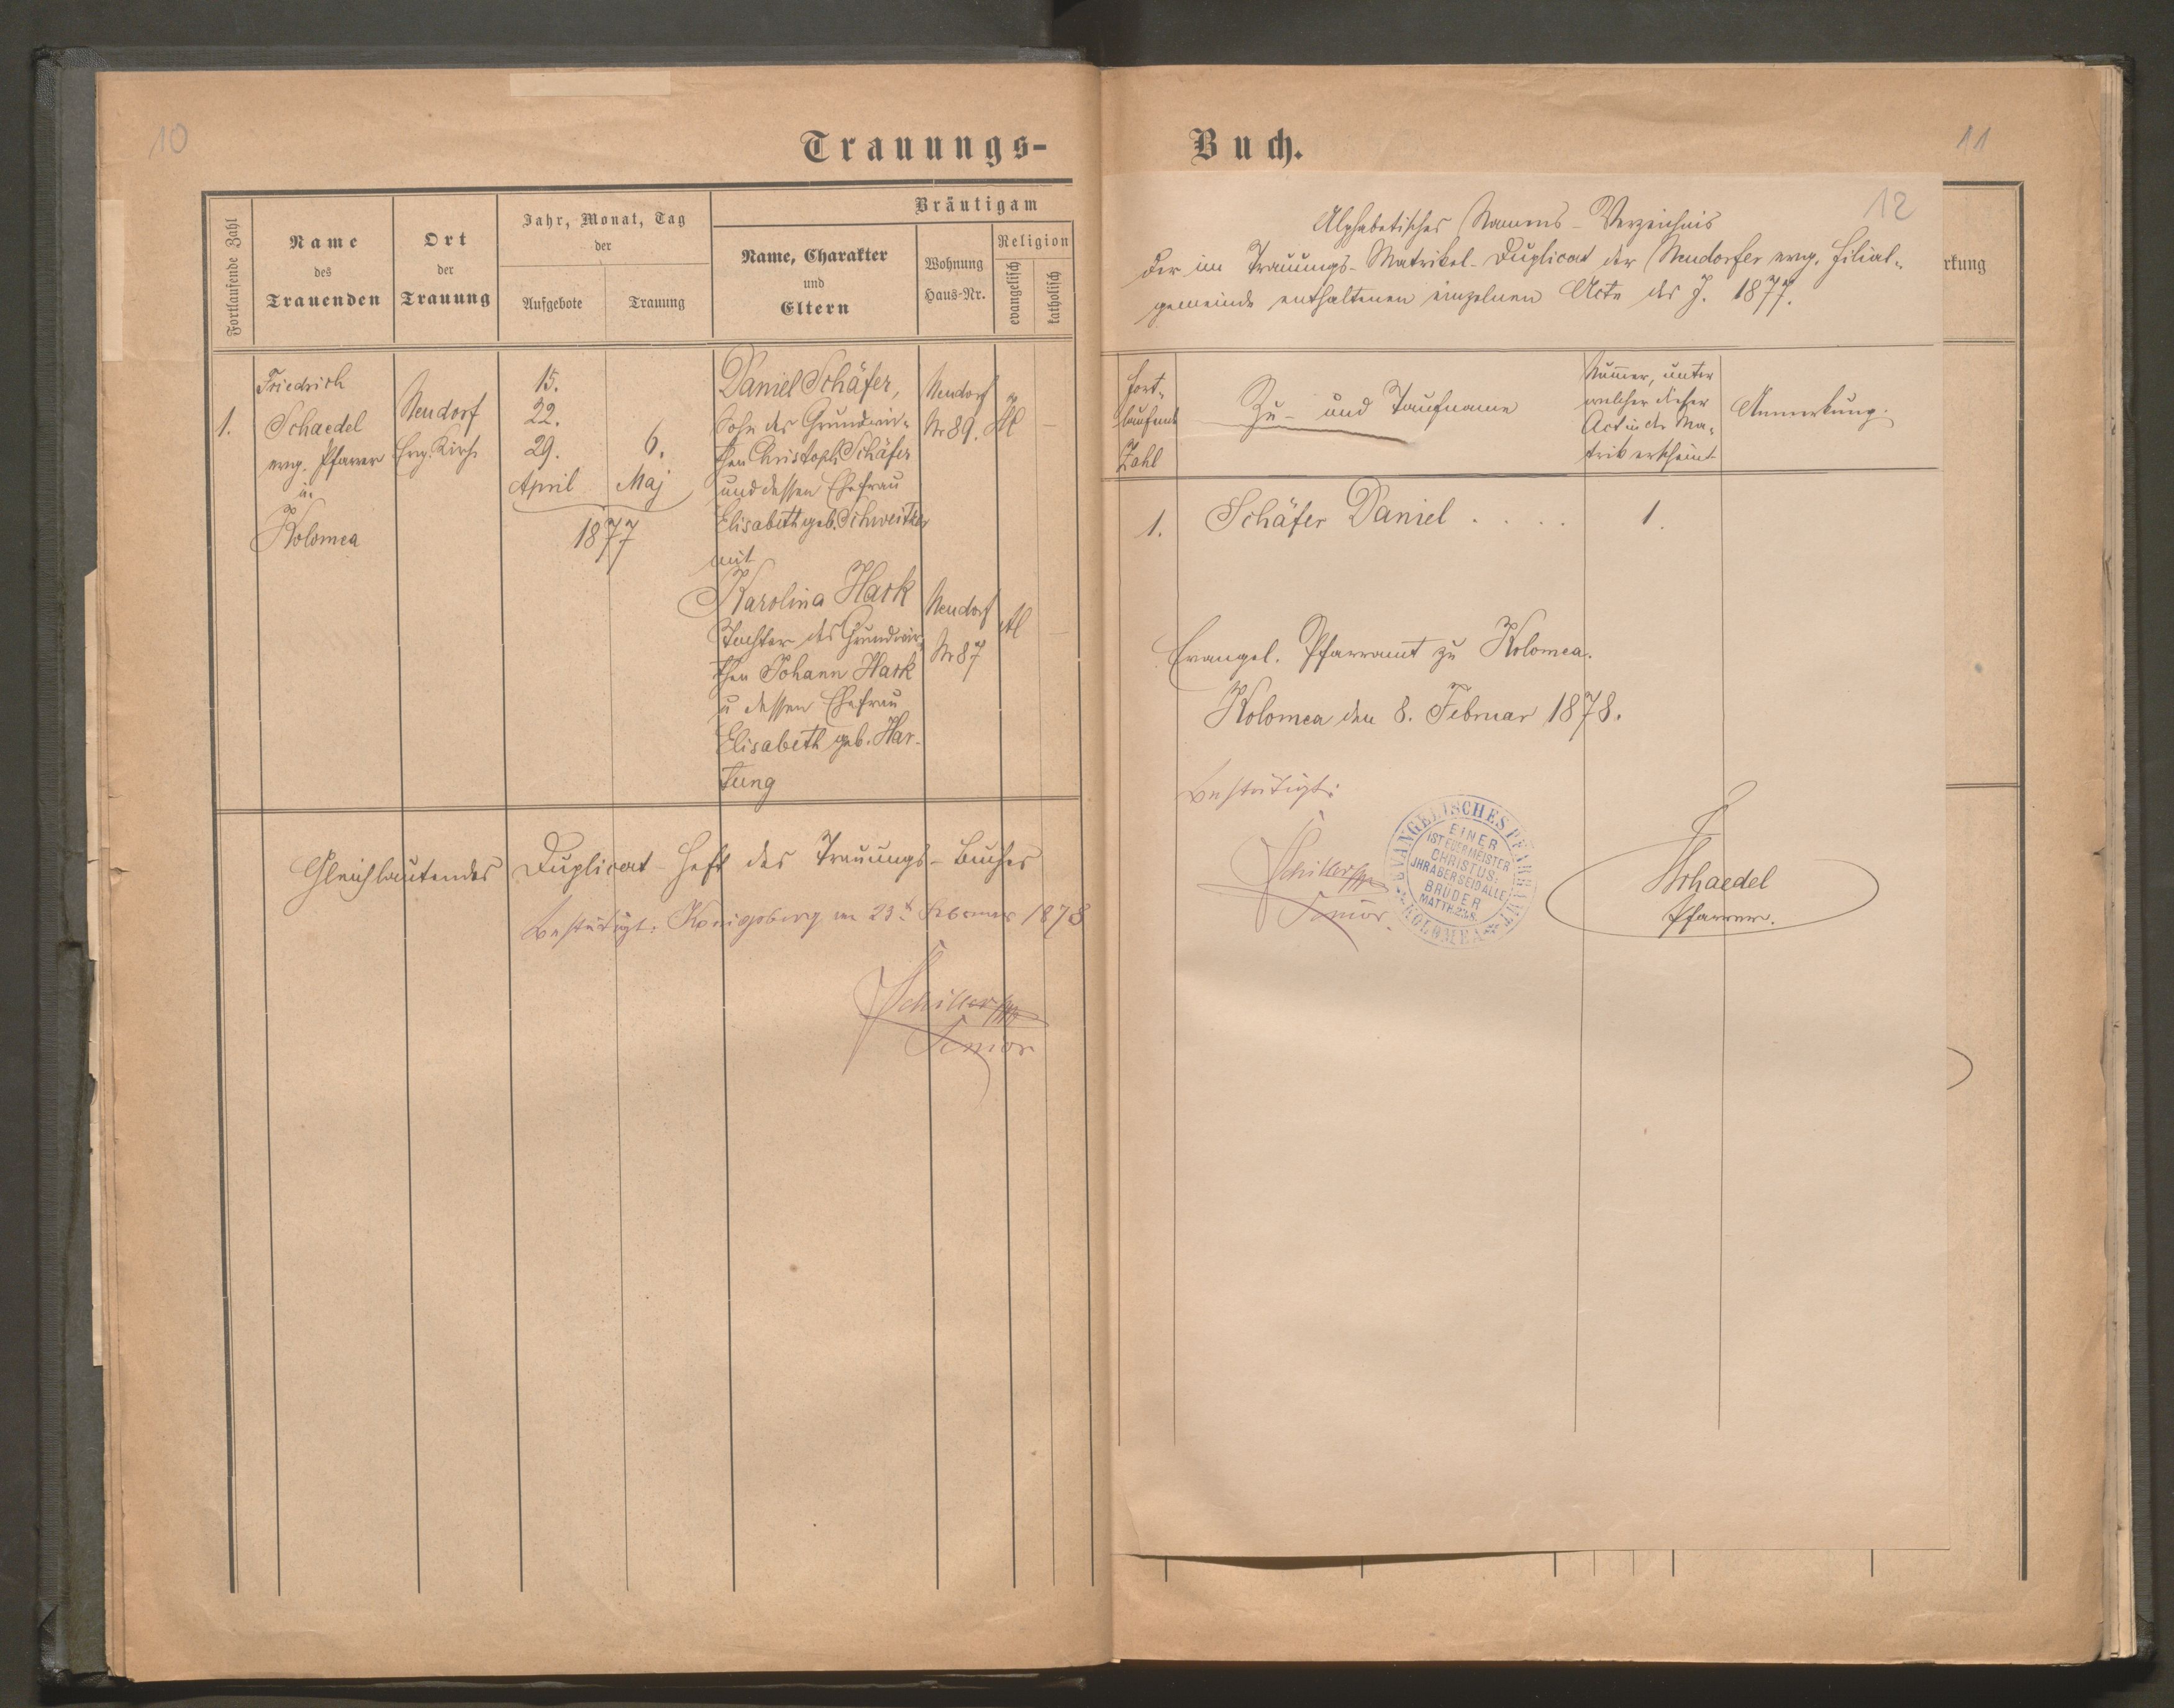 10
Trauungs-
Fortlaufende Zahl
Name
des
Trauenden
Ort
der
Trauung
Jahr, Monat, Tag
der
Aufgebote
Trauung
Bräutigam
Name, Charakter
und
Eltern
Wohnung
Haus-Nr.
Religion
evangelisch
katholisch
1.
Friedrich
Schaedel
evng. Pfarrer
in
Kolomea
Neudorf
Evg. Kirche
15.
22.
29.
April
6.
Maj
1877
Daniel Schäfer,
Sohn des Grundwir-
then Christoph Schäfer
und dessen Ehefrau
Elisabeth geb. Schweitzer
mit
Karolina Hark
Tochter des Grundwir-
then Johann Hark
u dessen Ehefrau
Elisabeth geb. Har-
tung
Neudorf
Nr 89.
AC
—
Neudorf
Nr 87
AC
—
Gleichlautendes Duplicat-Heft des Trauungs-Buches
Bestätigt: Königsberg am 23t Februar 1878
Schiller
Senior
Buch.
11
12
Alphabetisches Namens-Verzeichnis
der im Trauungs-Matrikel-Duplicat der Neudorfer evng. Filial-
gemeinde enthaltenen einzelnen Acte des J. 1877.
rkung
Fort-
laufende
Zahl
Zu- und Taufname
Nummer, unter
welcher dieser
Act in der Ma-
trik erscheint
Anmerkung.
1.
Schäfer Daniel . . . .
1.
Evangel. Pfarramt zu Kolomea.
Kolomea den 8. Februar 1878.
Bestätigt:
Schiller
Senior.
EVANGELISCHES PFARRAMT KOLOMEA
EINER
IST EUER MEISTER
CHRISTUS:
IHR ABER SEID ALLE
BRÜDER
MATTH.23.8.
FSchaedel
Pfarrer.